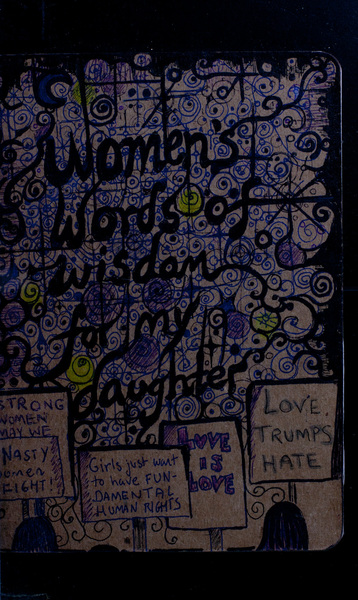 Women's
Words of
wisdom
for my
daughter
STRONG
WOMEN
MAY WE
NASTY
women
FIGHT!
Girls just want
to have FUN-
DAMENTAL
HUMAN RIGHTS
LOVE
IS
LOVE
LOVE.
TRUMPS
HATE